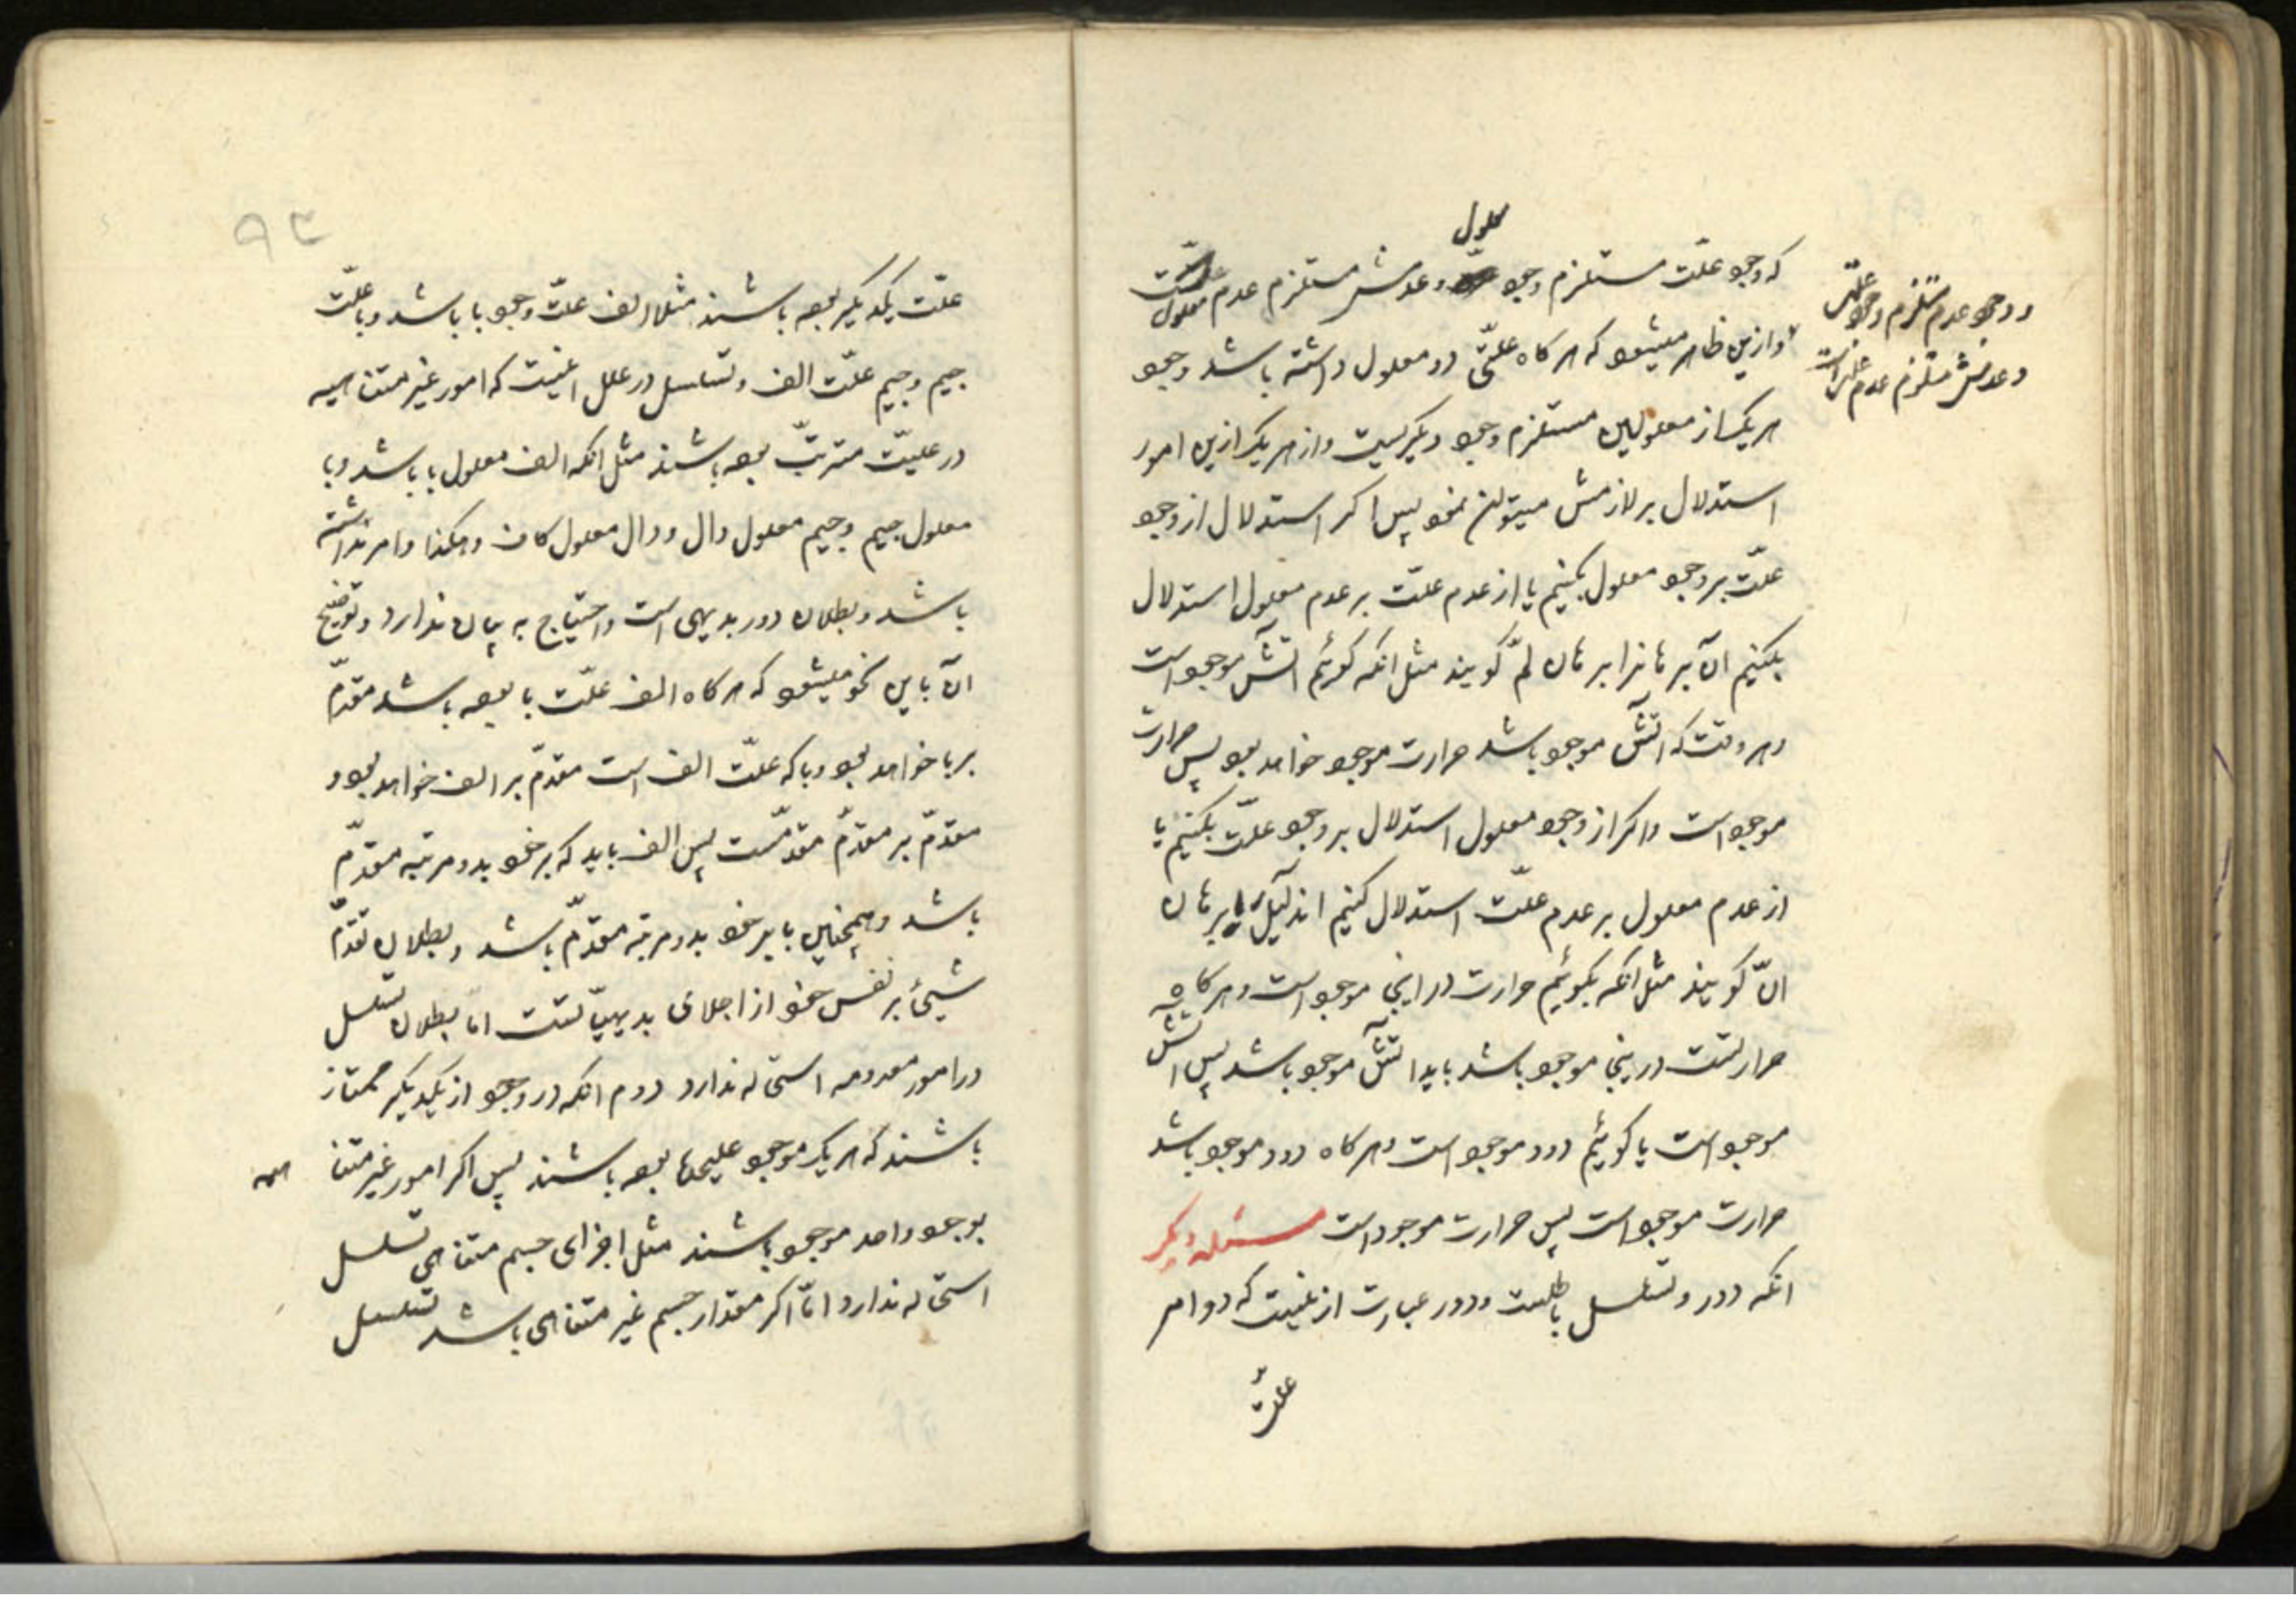 معلول
که وجود علّت مستلزم وجود و عدمش مستلزم عدم معلول
و وجود عدم مستلزم وجود علّتش
و عدمش مستلزم عدم علّتش است
و ازین ظاهر میشود که هر کاه علّتی دو معلول داشته باشد وجود
هر یک از معلولین مستلزم وجود دیکریست و از هر یک ازین امور
استدلال بر لازمش میتوان نمود پس اکر استدلال از وجود
علّت بر وجود معلول بکنیم یا از عدم علّت بر عدم معلول استدلال
بکنیم آن برهانرا برهان لمّ کویند مثل انکه کوئیم اتش موجود است
و هر وقت که اتش موجود باشد حرارت موجود خواهد بود پس حرارت
موجود است و اکر از وجود معلول استدلال بر وجود علّت بکنیم یا
از عدم معلول بر عدم علّت استدلال کنیم برهان
انّ کویند مثل انکه بکوئیم حرارت در اینجا موجود است و هر کاه
حرارت در اینجا موجود باشد باید اتش موجود باشد پس اتش
موجود است یا کوئیم دود موجود است و هر کاه دود موجود باشد
حرارت موجود است پس حرارت موجود است مسئله دیکر
انکه دور و تسلسل باطلست و دور عبارت ازینست که دو امر
علّت
۹۳
علّت یکدیکر بوده باشند مثلا الف علّت وجود با باشد و با علّت
جیم و جیم علّت الف و تسلسل در علل اینست که امور غیر متناهیه
در علیّت مترتّب بوده باشند مثل انکه الف معلول با باشد و با
معلول جیم و جیم معلول دال و دال معلول کاف و هکذا و امر نداشته
باشد و بطلان دور بدیهی است و احتیاج به بیان ندارد و توضیح
آن باین نحو میشود که هر کاه الف علّت با بوده باشد مقدّم
بر با خواهد بود و با که علّت الف است مقدّم بر الف خواهد بود و
مقدّم بر مقدّم مقدّمست پس الف باید که بر خود بدو مرتبه مقدّم
باشد و همچنین با بر خود بدو مرتبه مقدّم باشد و بطلان تقدّم
شیئ بر نفس خود از اجلای بدیهیّاتست امّا بطلان تسلسل
در امور معدومه استحاله ندارد دوم انکه در وجود از یکدیکر ممتاز
باشند که هر یک موجود علیحده بوده باشند پس اکر امور غیر متناهیه
بوجود واحد موجود باشند مثل اجزای جسم متناهی تسلسل
استحاله ندارد امّا اکر مقدار جسم غیر متناهی باشد تسلسل